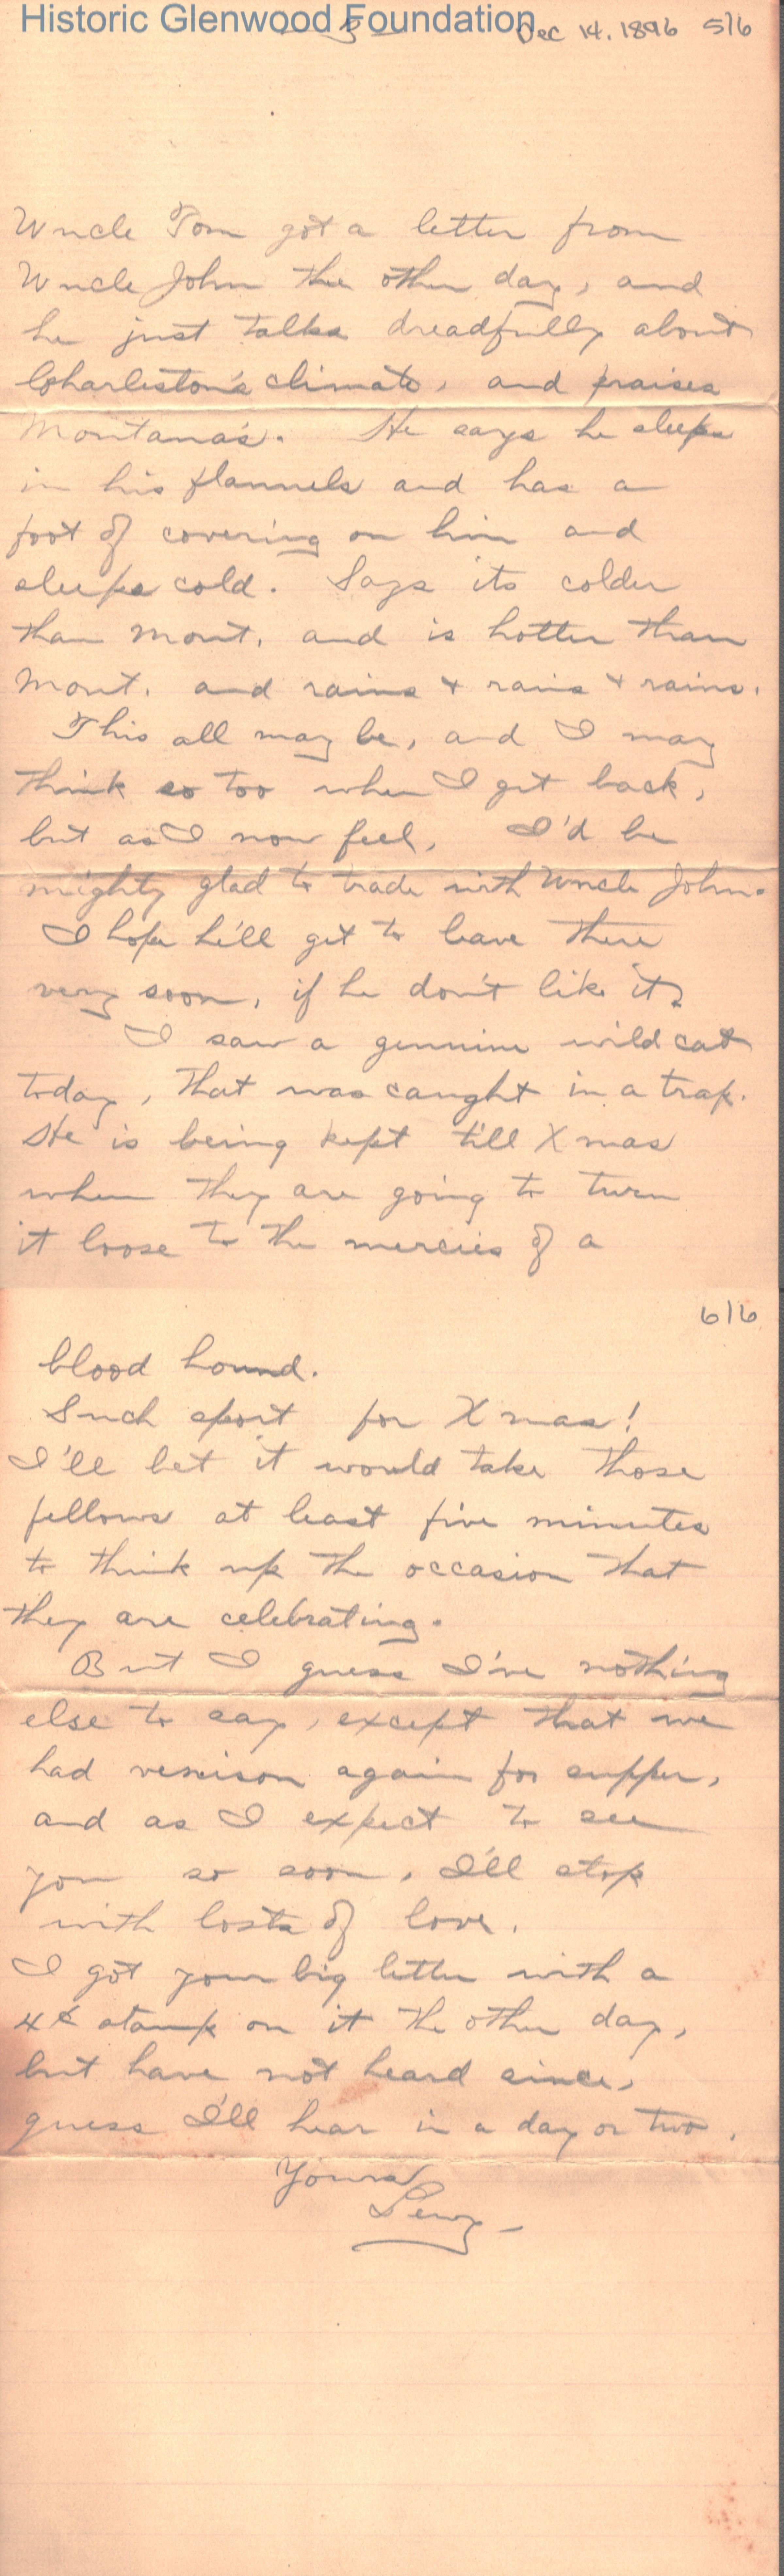 Historic Glenwood Foundation
— 5 — Dec 14. 1896 5/6
Uncle Tom got a letter from
Uncle John the other day, and
he just talks dreadfully about
Charleston's climate, and praises
Montana's. He says he sleeps
in his flannels and has a
foot of covering on him and
sleeps cold. Says its colder
than Mont. and is hotter than
Mont. and rains & rains & rains.
This all may be, and I may
think so too when I get back,
but as I now feel, I'd be
mighty glad to trade with Uncle John.
I hope he'll get to leave there
very soon, if he don't like it.
I saw a genuine wild cat
today, that was caught in a trap.
He is being kept till Xmas
when they are going to turn
it loose to the mercies of a
6/6
blood hound.
Such sport for Xmas!
I'll bet it would take those
fellows at least five minutes
to think up the occasion that
they are celebrating.
But I guess I've nothing
else to say, except that we
had venison again for supper,
and as I expect to see
you so soon, I'll stop
with losts of love.
I got your big letter with a
4¢ stamp on it the other day,
but have not heard since,
guess I'll hear in a day or two.
Yours